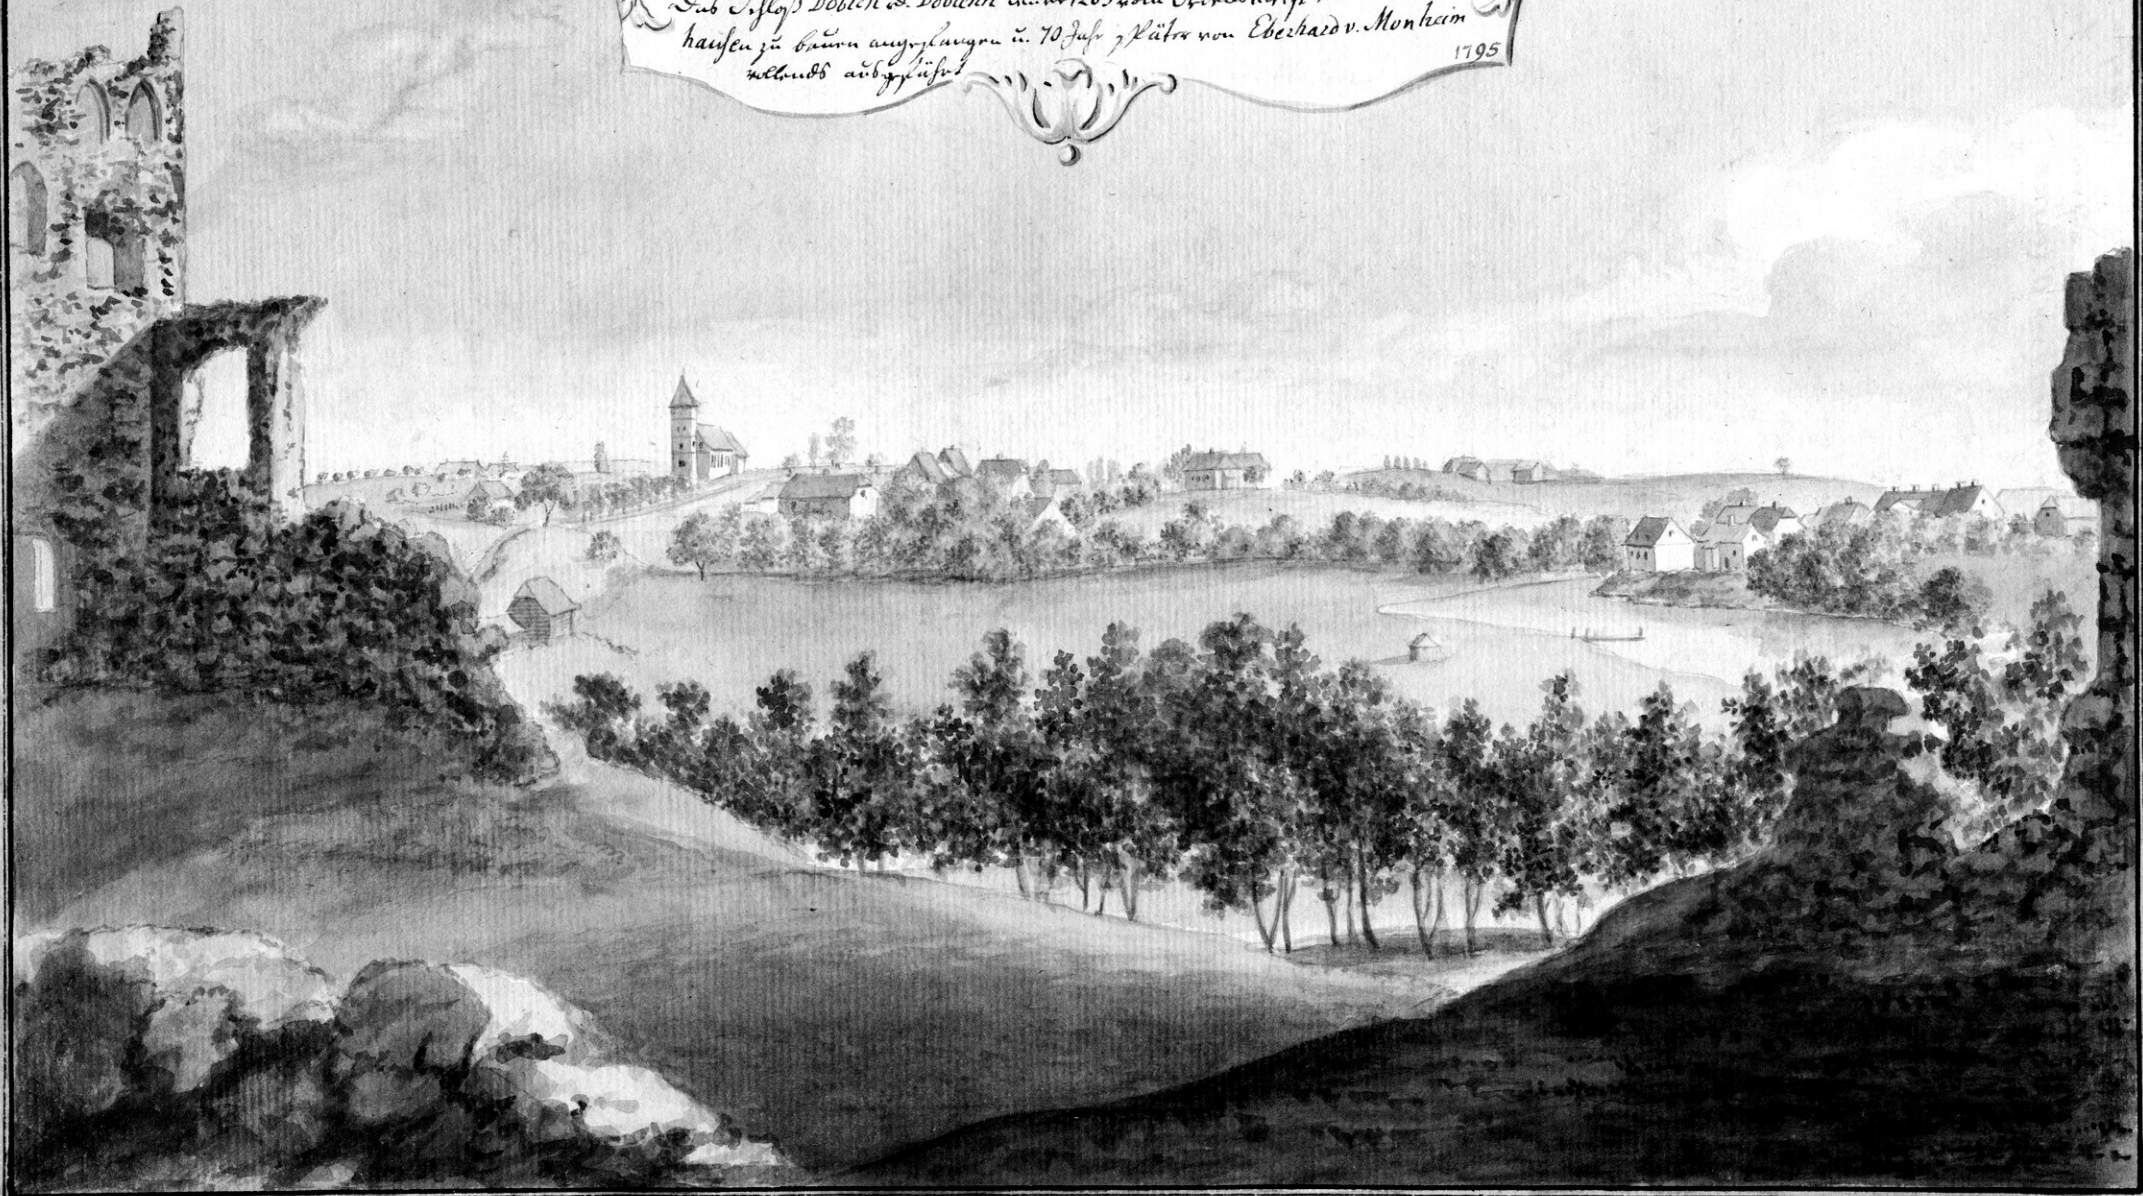 Das Schloß Doblen
hausen zu bauen angefangen u. 70 Jahr später von Eberhard v. Monheim
vollends ausgeführt
1795